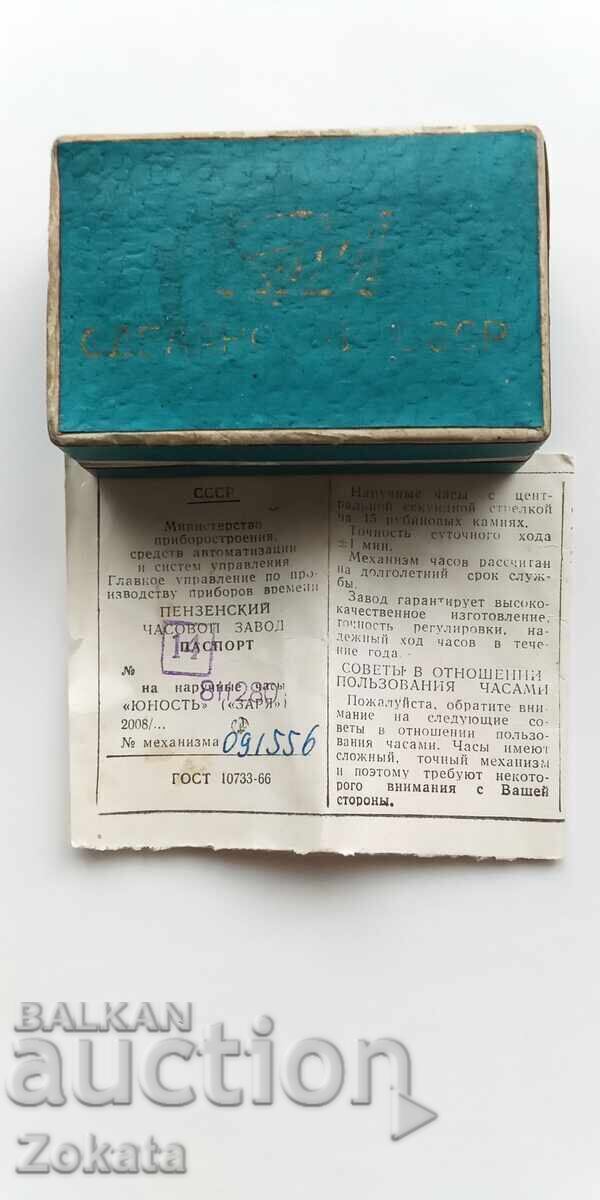 СДЕЛАНО В СССР
СССР
Министерство
приборостроения,
средств автоматизации
и систем управления
Главное управление по про-
изводству приборов времени
ПЕНЗЕНСКИЙ
ЧАСОВОЙ ЗАВОД
14
ПАСПОРТ
№
на наручные часы
«ЮНОСТЬ» («ЗАРЯ»)
2008/...
№ механизма 091556
ГОСТ 10733-66
Наручные часы с цент-
ральной секундной стрелкой
на 15 рубиновых камнях.
Точность суточного хода
±1 мин.
Механизм часов рассчитан
на долголетний срок служ-
бы.
Завод гарантирует высоко-
качественное изготовление,
точность регулировки, на-
дежный ход часов в тече-
ние года.
СОВЕТЫ В ОТНОШЕНИИ
ПОЛЬЗОВАНИЯ ЧАСАМИ
Пожалуйста, обратите вни-
мание на следующие со-
веты в отношении пользо-
вания часами. Часы имеют
сложный, точный механизм
и поэтому требуют некото-
рого внимания с Вашей
стороны.
BALKAN
auction
Zokata